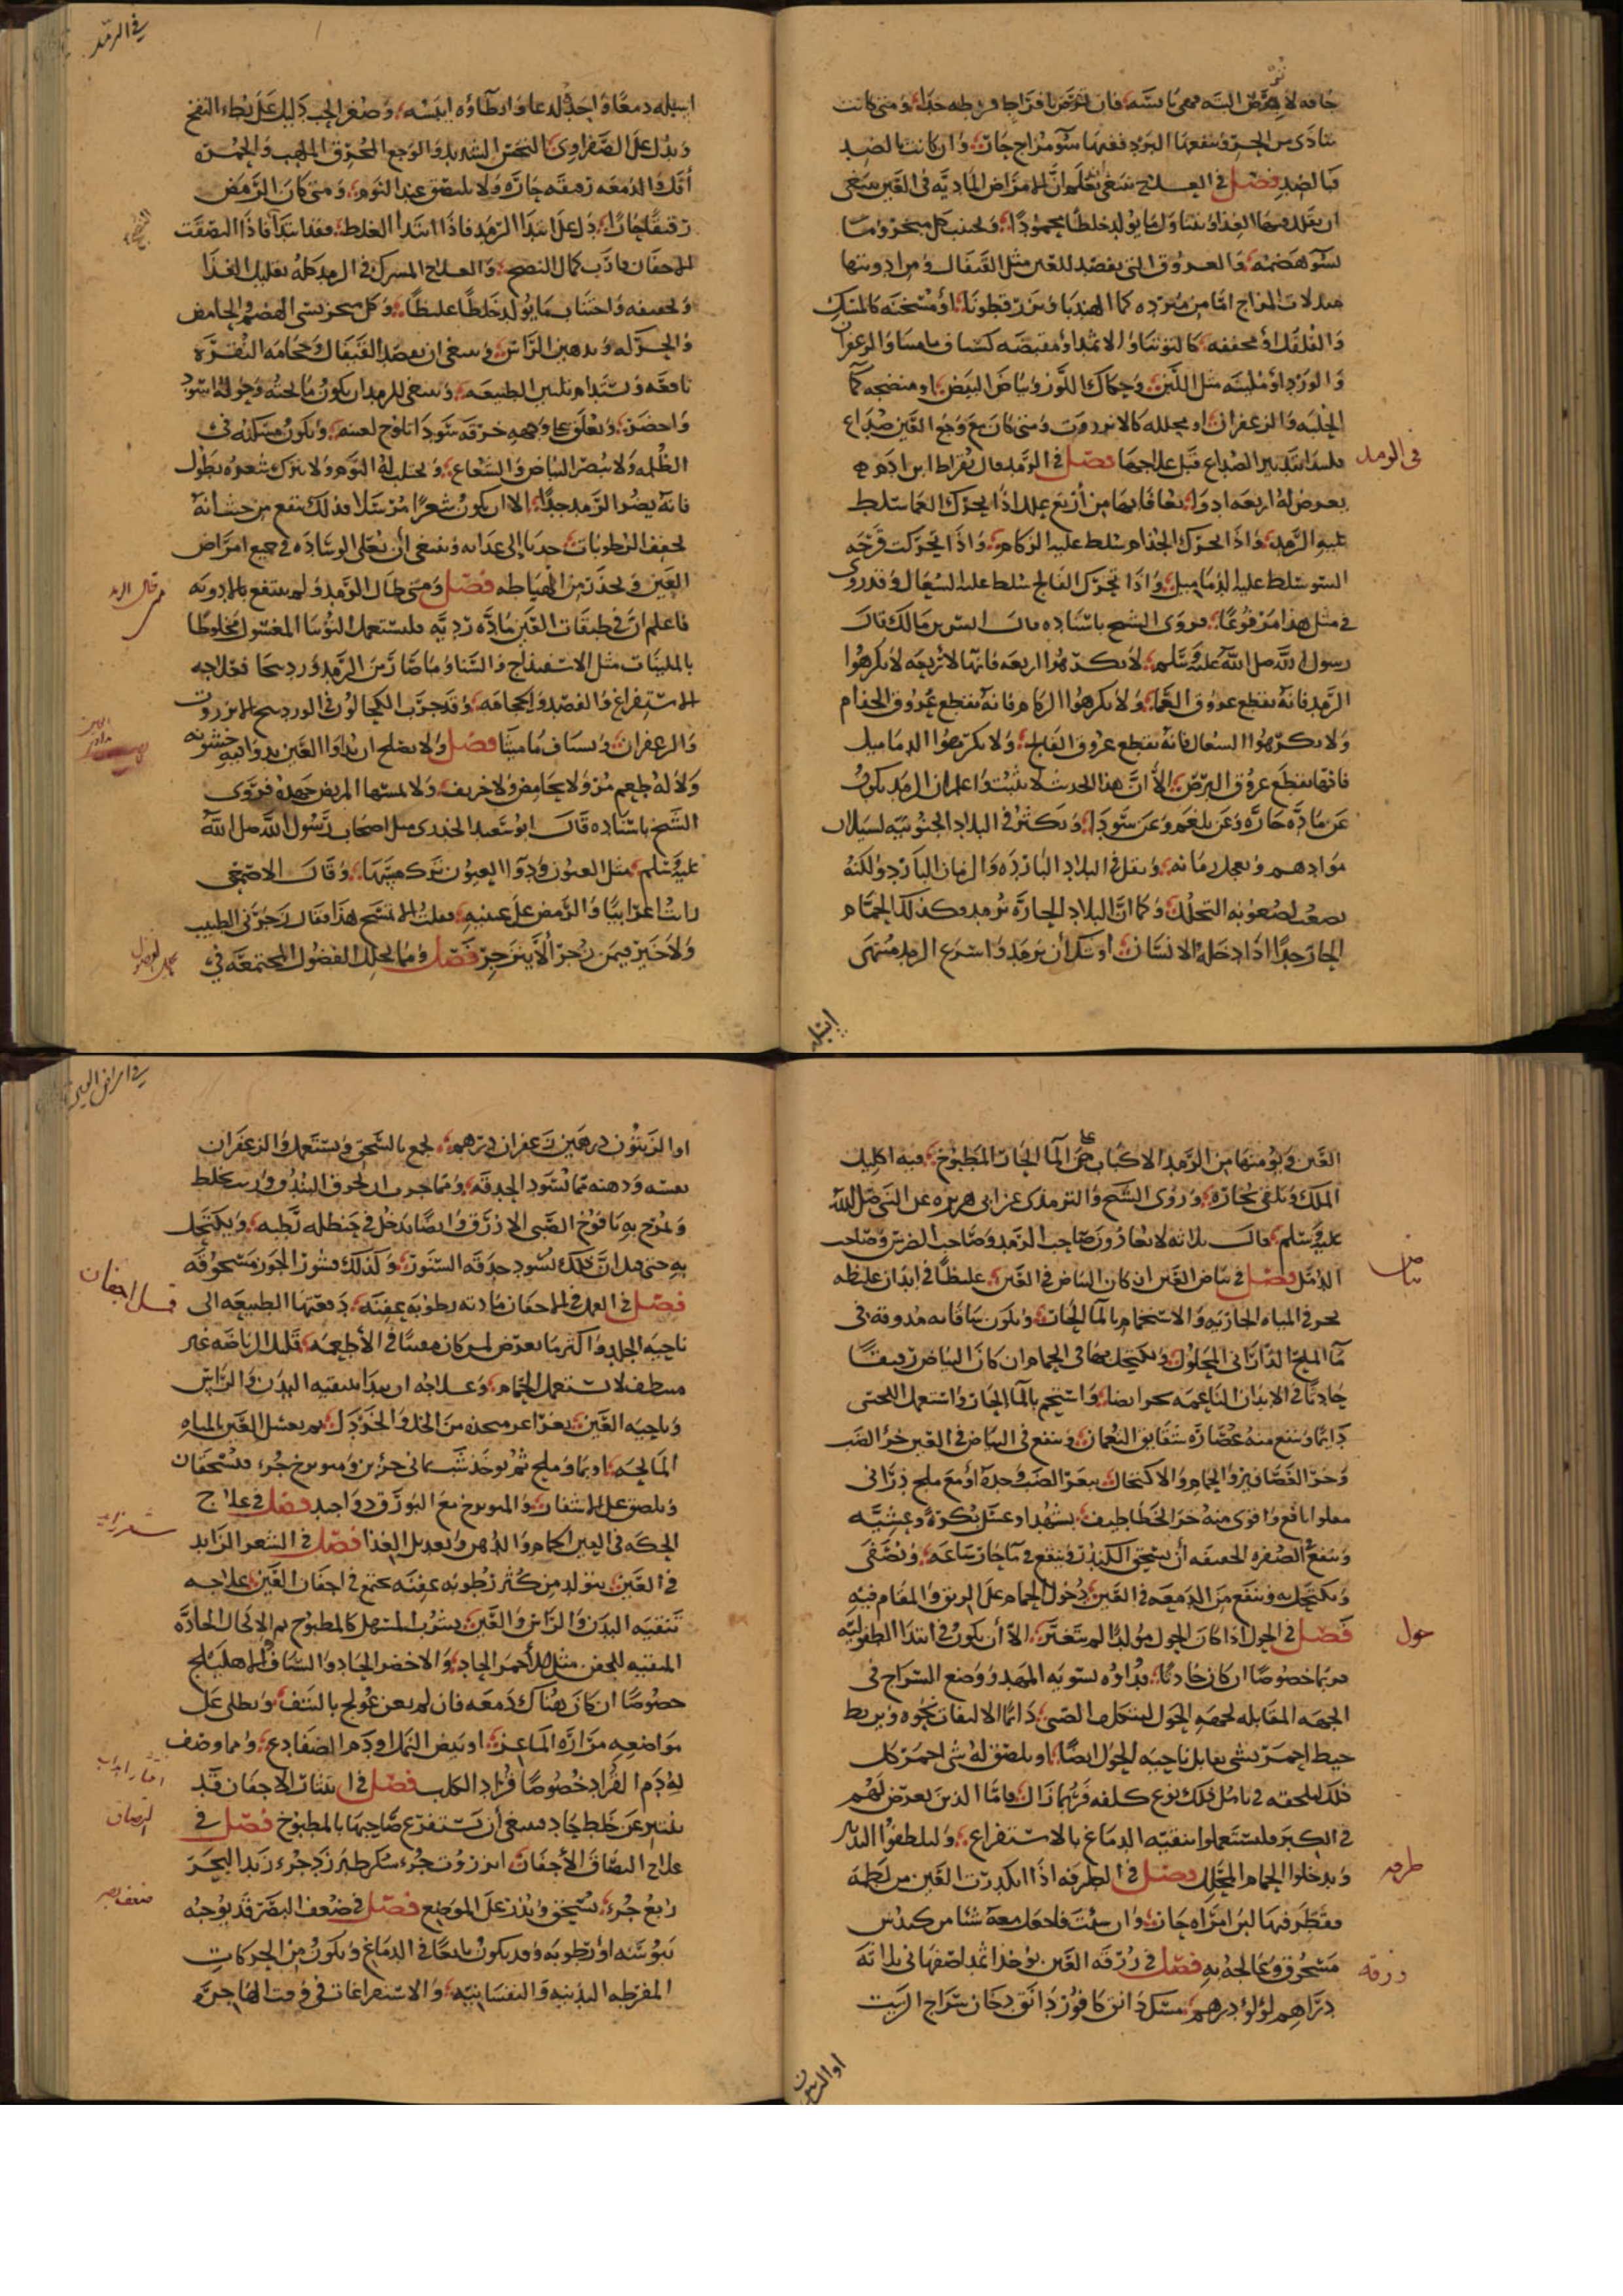 جافه لا يعرض البتة فهي يابسة فان تعرض بافراط فرطبه جدا ومتى كانت
تتأذى من الحر وينفعها البرد ففيها سوء مزاج حار وان كانت بالضد
فبالضد فصل في العلاج ينبغي أن تعلم ان للامراض المادية في العين ينبغي
ان يقلل فيها الغذا ويتناول ما يولد خلطا محمودا ويجتنب كل مبخر وما
يسوء هضمه والعروق التي تفصد للعين مثل القيفال ومن ادويتها
مبدلات المزاج اما من مبرده كما الهندبا وبزر قطونا او مسخنه كالمسك
والفلفل او مجففه كالتوتيا والاثمد او مقبضه كشياف ماميثا والزعفران
والورد او ملينه مثل اللبن وحكاك اللوز وبياض البيض او منضجه كما
الحلبه والزعفران او محلله كالانزروت ومتى كان مع وجع العين صداع
فليبدا بتدبير الصداع قبل علاجها فصل في الرمد قال بقراط ابن ادم
في الرمد
يعرض له اربعه ادوا يعافا بها من أربع علل اذا تحرك العما سلط
عليه الرمد واذا تحرك الجذام سلط عليه الزكام واذا تحركت قرحه
السو سلط عليه الدماميل واذا تحرك الفالج سلط عليه السعال وقد روي
في مثل هذا مرفوعا فروى الشيخ باسناده قال انس بن مالك قال
رسول الله صلى الله عليه وسلم لا تكرهوا اربعه فانها لاربعه لا تكرهوا
الرمد فانه يقطع عروق العما ولا تكرهوا الزكام فانه يقطع عروق الجذام
ولا تكرهوا السعال فانه يقطع عروق الفالج ولا تكرهوا الدماميل
فانها تقطع عروق البرص الا ان هذا الحديث لا يثبت واعلم ان الرمد يكون
عن ماده حاره وعن بلغم وعن سودا ويكثر في البلاد الجنوبيه لسيلان
موادهم ويعجل زمانه ويقل في البلاد البارده والزمان البارد ولكنه
يصعب لصعوبه التحلل وكما ان البلاد الحاره ترمد فكذلك الحمام
الحار جدا اذا دخله الانسان اوشك أن يرمد واسرع الرمد منتهى
اسيله
في الرمد
اسيله دمعا واحده لدعا وابطاؤه ايبسه وصغر الحب دليل على بطء النضج
ويدل على الصفراوي النخس الشديد والوجع المحرق الملهب والحمرة
أقل والدمعه رقيقه حاره ولا يلتصق عند النوم ومتى كان الرمص
رقيقا حارا دل على ابتدا الرمد فاذا ابتدأ الغلظ فقد ابتدا فاذا التصقت
الاجفان قارب كمال النضج والعلاج المشترك في الرمد كله تقليل الغذا
وتخفيفه واجتناب ما يولد خلطا غليظا وكل مبخر يسي الهضم والحامض
والحركه وتدهين الراس وينبغي ان يفصد القيفال وحجامه النقره
نافعه وتستدام تليين الطبيعه وينبغي للرمد ان يكون ما تحته وحوله اسود
واخضر ويعلق على وجهه خرقه سودا تلوح لعينه ويكون مسكنه في
الظلمه ولا يبصر البياض والشعاع ويجلب له النوم ولا يترك شعره يطول
فانه يضر الرمد جدا الا ان يكون شعرا مرسلا فذلك ينفع من حيث انه
يجفف الرطوبات جذبا إلى غذائه وينبغي أن تعلى الوساده في جميع امراض
العين ويحذر من طاطه فصل ومتى طال الرمد ولم ينتفع بالادويه
فاعلم ان في طبقات العين ماده رديه فليستعمل التوتيا المغسول مخلوطا
بالملينات مثل الاسفيداج والنشا وما صار من الرمد وردينجا فعلاجه
الاستفراغ والفصد والحجامه وقد جرب الكحالون في الوردينج الانزروت
والزعفران وشياف ماميثا فصل ولا يصلح ان تداوا العين بدوا فيه خشونه
ولا له طعم مر ولا بحامض ولا حريف ولا يمسها المريض جهده فروى
الشيخ باسناده قال ابو سعيد الخدري مثل اصحاب رسول الله صلى الله
عليه وسلم مثل العيون ودوا العيون ترك مسها وقال الاصمعي
رايت اعرابيا والرمص على عينيه فقلت الا تمسح هذا فقال زجرني الطبيب
ولا خير فيمن زجر ألا ينزجر فصل ومما يحلل الفضول المجتمعه في
العين ويؤمنها من الرمد الاكباب على الما الحار المطبوخ فيه اكليل
الملك وتلقي بخاره وروى الشيخ والترمذي عن ابي هريره عن النبي صلى الله
عليه وسلم قال ثلاثه لا يعادون صاحب الرمد وصاحب الضرس وصاحب
الدمل فصل في بياض العين ان كان البياض في العين غليظا في ابدان غليظه
بياض
نحر في المياه الحاريه والاستحمام بالما الحار وتكون شيافاته مدوفه في
ما الملح الداراني المحلول ويكتحل بها في الحمام وان كان البياض رقيقا
حادثا في الابدان الناعمه بحر ايضا واستحم بالما الحار واستعمل اللحس
دايما وينفع منه عصاره شقايق النعمان وينفع في البياض في العين خرؤ الضب
وخرؤ العصافير والحمام والاكتحال ببعر الضب وحده او مع ملح ذراني
مقلوا نافع واقوى منه خرؤ الخطاطيف بشهد او عسل بكرة وعشيه
وينفع الصفره الخفيفه أن يسحق الكندر وينقع في ما حار ساعه ويصفى
ويكتحل به وينفع من الدمعه في العين دخول الحمام على الريق والمقام فيه
فصل في الحول اذا كان الحول مولدا لم يتغير الا أن يكون في ابتدا الطفوليه
حول
فربما خصوصا ان كان حادثا فدواؤه تسويه المهد ووضع السراج في
الجهه المقابله لجهه الحول ليتكلف الصبي دايما الالتفات نحوه ويربط
خيط احمر بشي يقابل ناحيه الحول ايضا او يلصق له شي احمر كل
ذلك ليلحقه في تامل ذلك نوع كلفه فربما زال فاما الذين يعرض لهم
في الكبر فليستعملوا تنقيه الدماغ بالاستفراغ وليلطفوا التدبير
ويدخلوا الحمام المحلل فصل في الطرفه اذا انكدرت العين من لطمه
طرفه
فقطر فيها لبن امراه حار وان شئت فاجعل معه شيا من كندس
مسحوق وعالجه به فصل في زرقه العين يؤخذ اثمد اصفهاني ثلاثه
زرقه
دراهم لؤلؤ درهم مسك دانق كافور دانق دخان سراج الزيت
او الزيتون
في امراض العين
او الزيتون درهمين زعفران درهم يجمع بالسحق ويستعمل والزعفران
نفسه ودهنه مما يسود الحدقه ومما جرب ان يحرق البندق ويخلط
ويمرخ به يافوخ الصبي الازرق وايضا يدخل في حنظله رطبه ويكتحل
به حتى قيل ان ذلك يسود حدقه السنور وكذلك قشور الجوز مسحوقه
فصل في القمل في الاجفان مادته رطوبه عفنه دفعتها الطبيعه الى
قمل اجفان
ناحيه الجلد واكثر ما يعرض لمن كان مفننا في الأطعمه قليل الرياضه غير
متنظف لا يستعمل الحمام وعلاجه ان يبدا بتنقيه البدن والراس
وناحيه العين بغراغر متخذه من الخل والخردل ثم يغسل العين بالمياه
المالحه او بما وملح ثم يؤخذ شب يماني جزئين وميويزج جزء فيسحقان
ويلصق على الاشفار والميويزج مع البورق دوا جيد فصل في علاج
الحكه في العين الحمام والدهن وتعديل الغذا فصل في الشعر الزايد
شعر زايد
في العين يتولد من كثرة رطوبه عفنه تجتمع في اجفان العين علاجه
تنقيه البدن والراس والعين بشرب المسهل كالمطبوخ ثم الاكحال الحاده
المنقيه للجفن مثل الأحمر الحاد والاخضر الحاد والشياف الاهليلج
خصوصا ان كان هناك دمعه فان لم يغن عولج بالنتف ويطلى على
مواضعه مراره الماعز او بيض النمل او دم الضفادع ومما وصف
له دم القراد خصوصا قراد الكلب فصل في انتثار الاجفان قد
ينتثر عن خلط حاد فينبغي أن يستفرغ صاحبها بالمطبوخ فصل في
علاج التصاق الأجفان انزروت جزء سكر طبرزد جزء زبد البحر
التصاق
ربع جزء يسحق ويذر على الموضع فصل في ضعف البصر قد يوجبه
ضعف بصر
يبوسه او رطوبه وقد يكون تابعا في الدماغ ويكون من الحركات
المفرطه البدنيه والنفسانيه والاستفراغات في وقت الهاجره